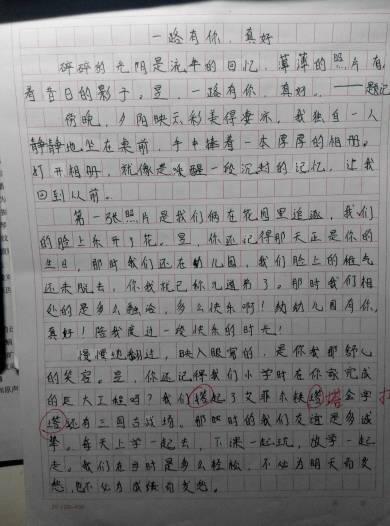 一路有你，真好
碎碎的光阴是流年的回忆，薄薄的照片有
着昔日的影子。昱，一路有你，真好。——题记
傍晚，夕阳映云彩美得耍赖，我独自一人
静静地坐在桌前，手中捧着一本厚厚的相册。
打开相册，就像是唤醒一段沉封的记忆，让我
回到从前。
第一张照片是我们俩在花园里追逐，我们
的脸上乐开了花。昱，你还记得那天正是你的
生日，那时我们还在幼儿园，我们脸上的稚气
还未脱去，你我就已你儿通书了。那时我们相
处的是多么融洽，多么快乐啊！幼幼儿园有你，
真好！陪我度过一段快乐的时光！
慢慢地翻过，映入眼帘的，是你我那舒心
的笑容。昱，你还记得我们小学时在你家完成
的巨大工程吗？我们搭起了艾菲尔铁塔 金字
塔还有三国古战场。那时的我们友谊是多诚
挚。每天上学一起去，下课一起玩，放学一起
走。我们在当时是多么轻松，不必为明天而发
愁，也不必为成绩而发愁。